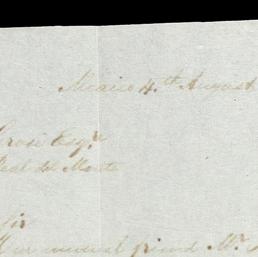 Mexico 4.th August
Esqr
Real del Monte
Sir
Our mutual friend Mr.